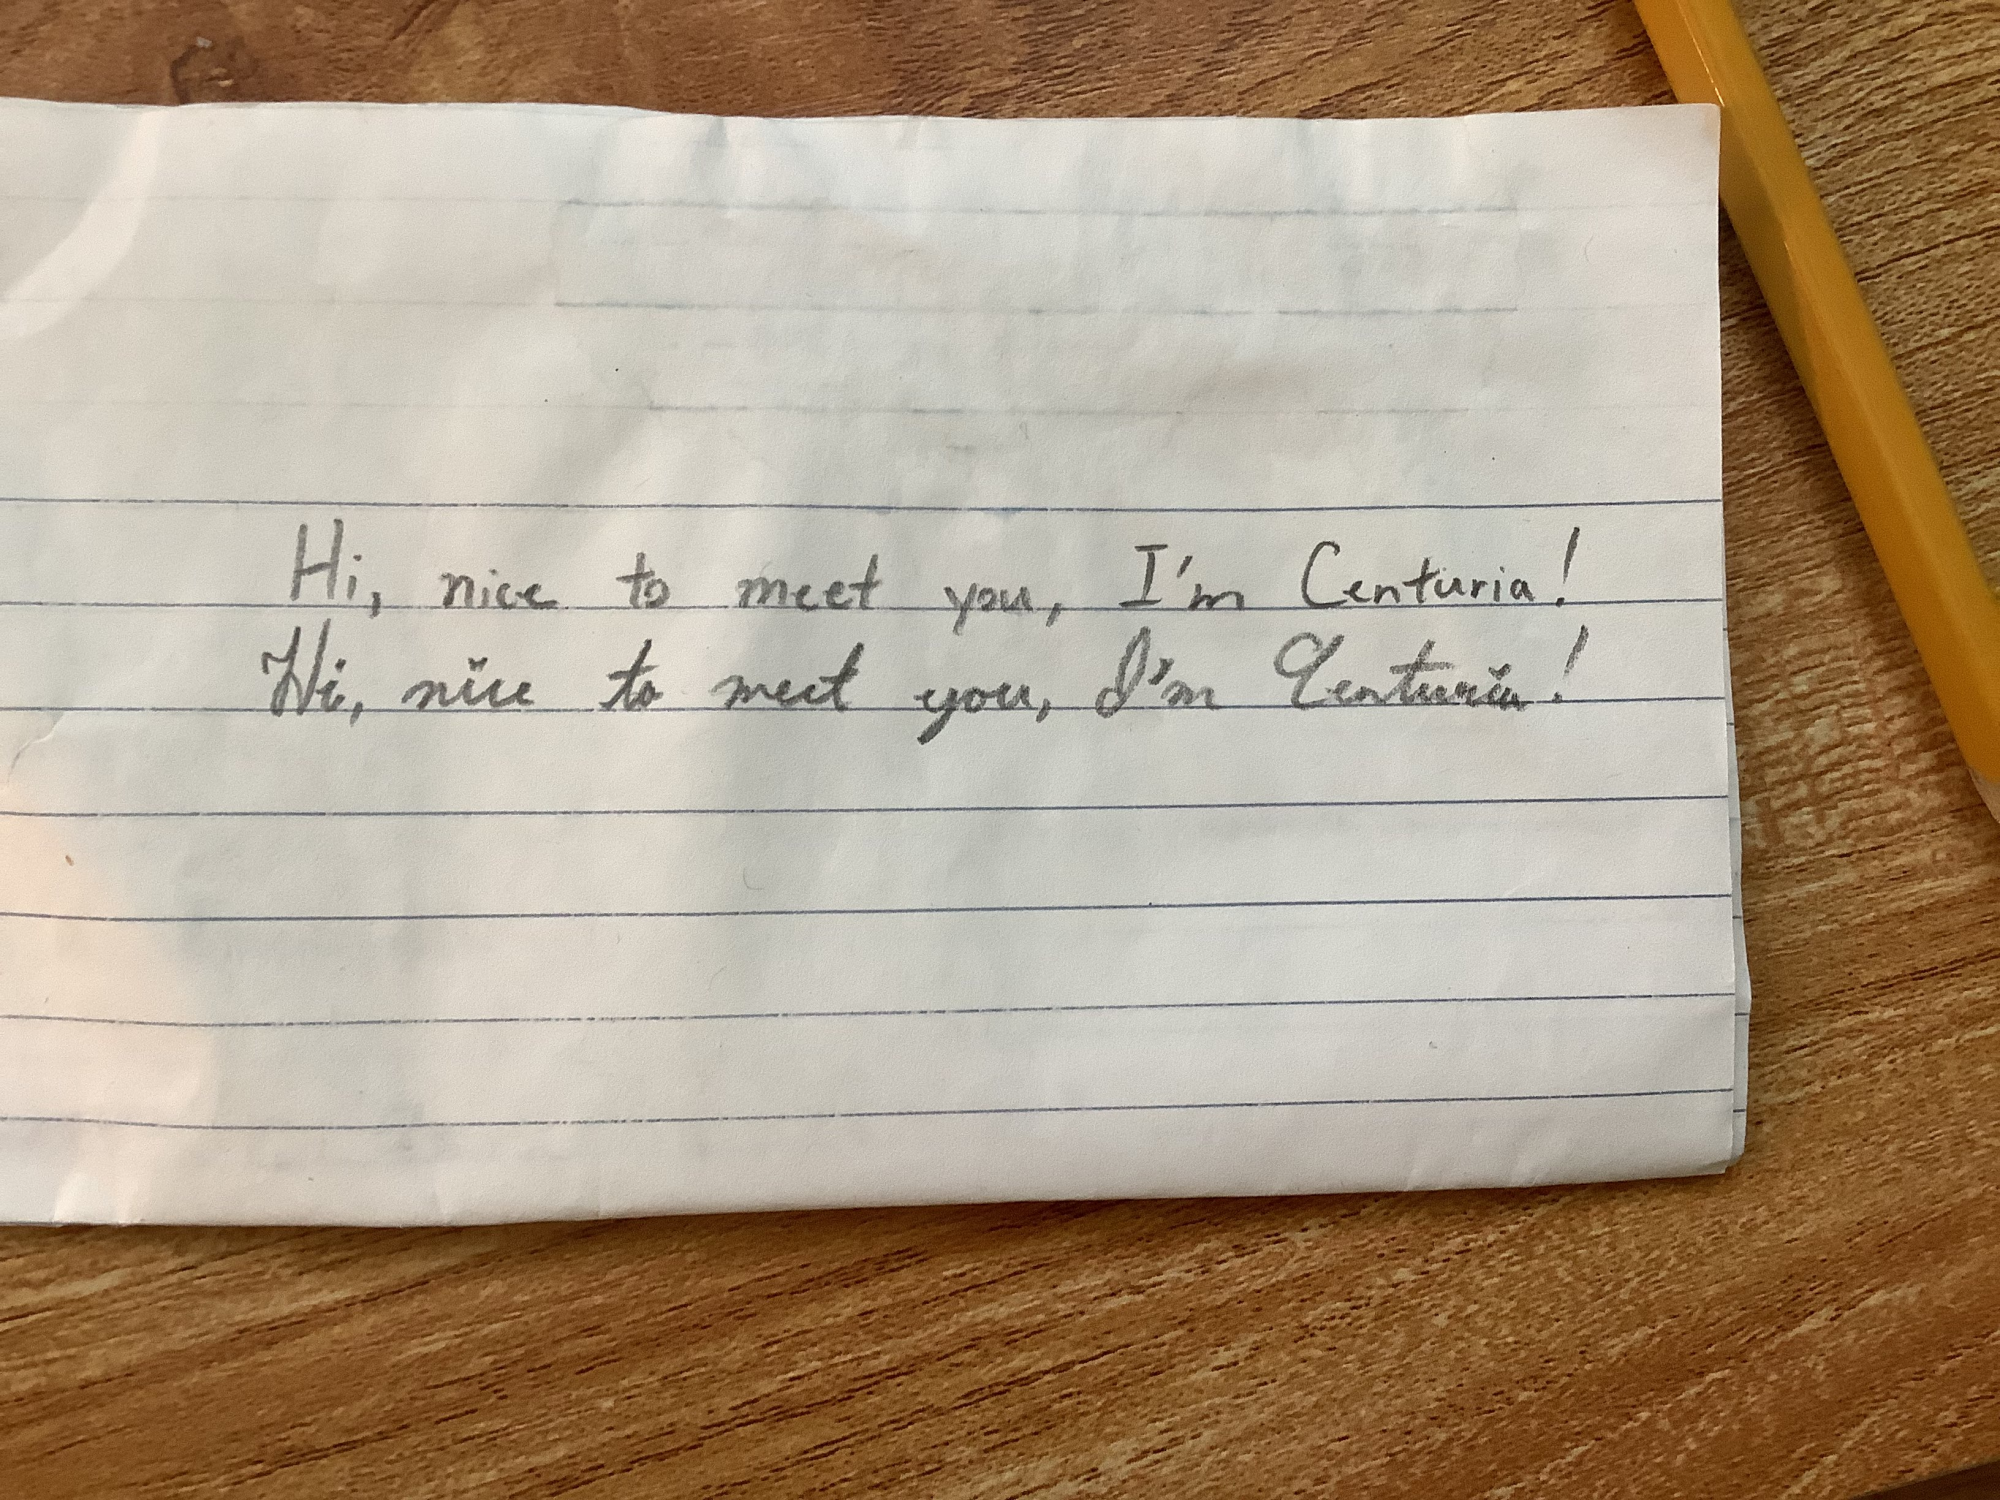 Hi, nice to meet you, I'm Centuria!
Hi, nice to meet you, I'm Centuria!